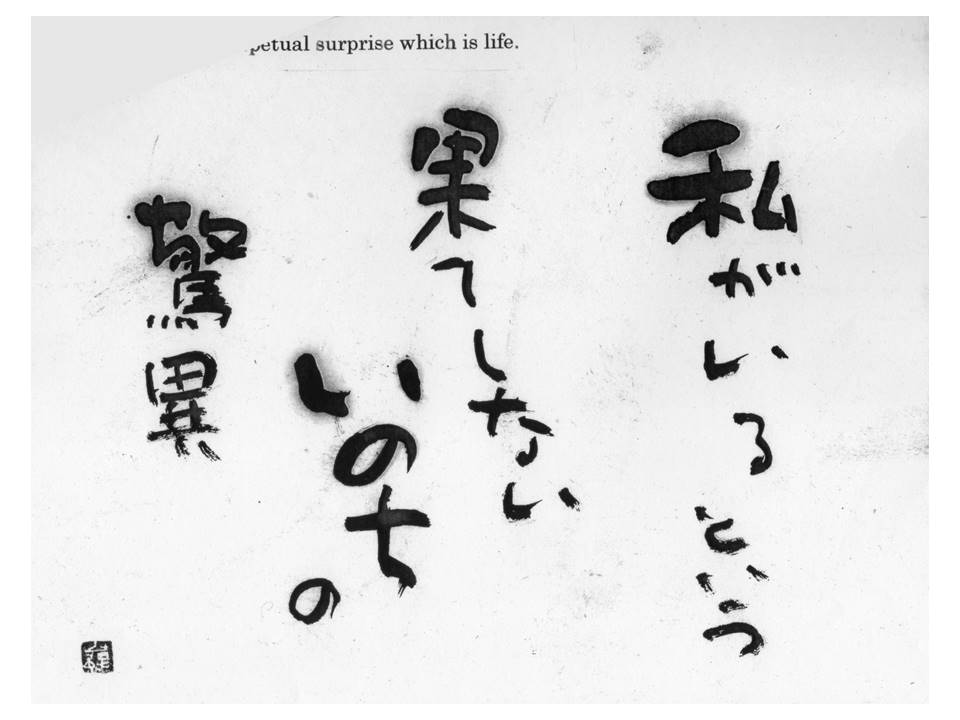 petual surprise which is life.
私がいるという
果てしない
いのちの
驚異